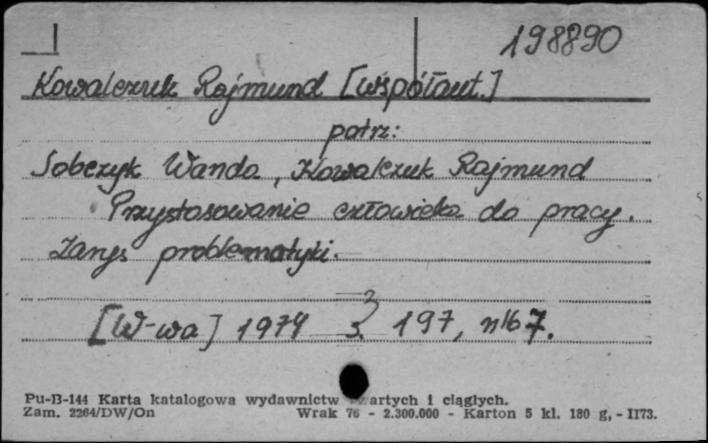 198890
Kowalczuk Rajmund [współaut.]
patrz:
Sobczyk Wanda, Kowalczuk Rajmund
Przystosowanie człowieka do pracy.
Zarys problematyki.
[W-wa] 1974 s. 197, nlb 7.
Pu-B-144 Karta katalogowa wydawnictw artych i ciągłych.
Zam. 2264/DW/On Wrak 76 - 2.300.000 - Karton 5 kl. 180 g, - II73.